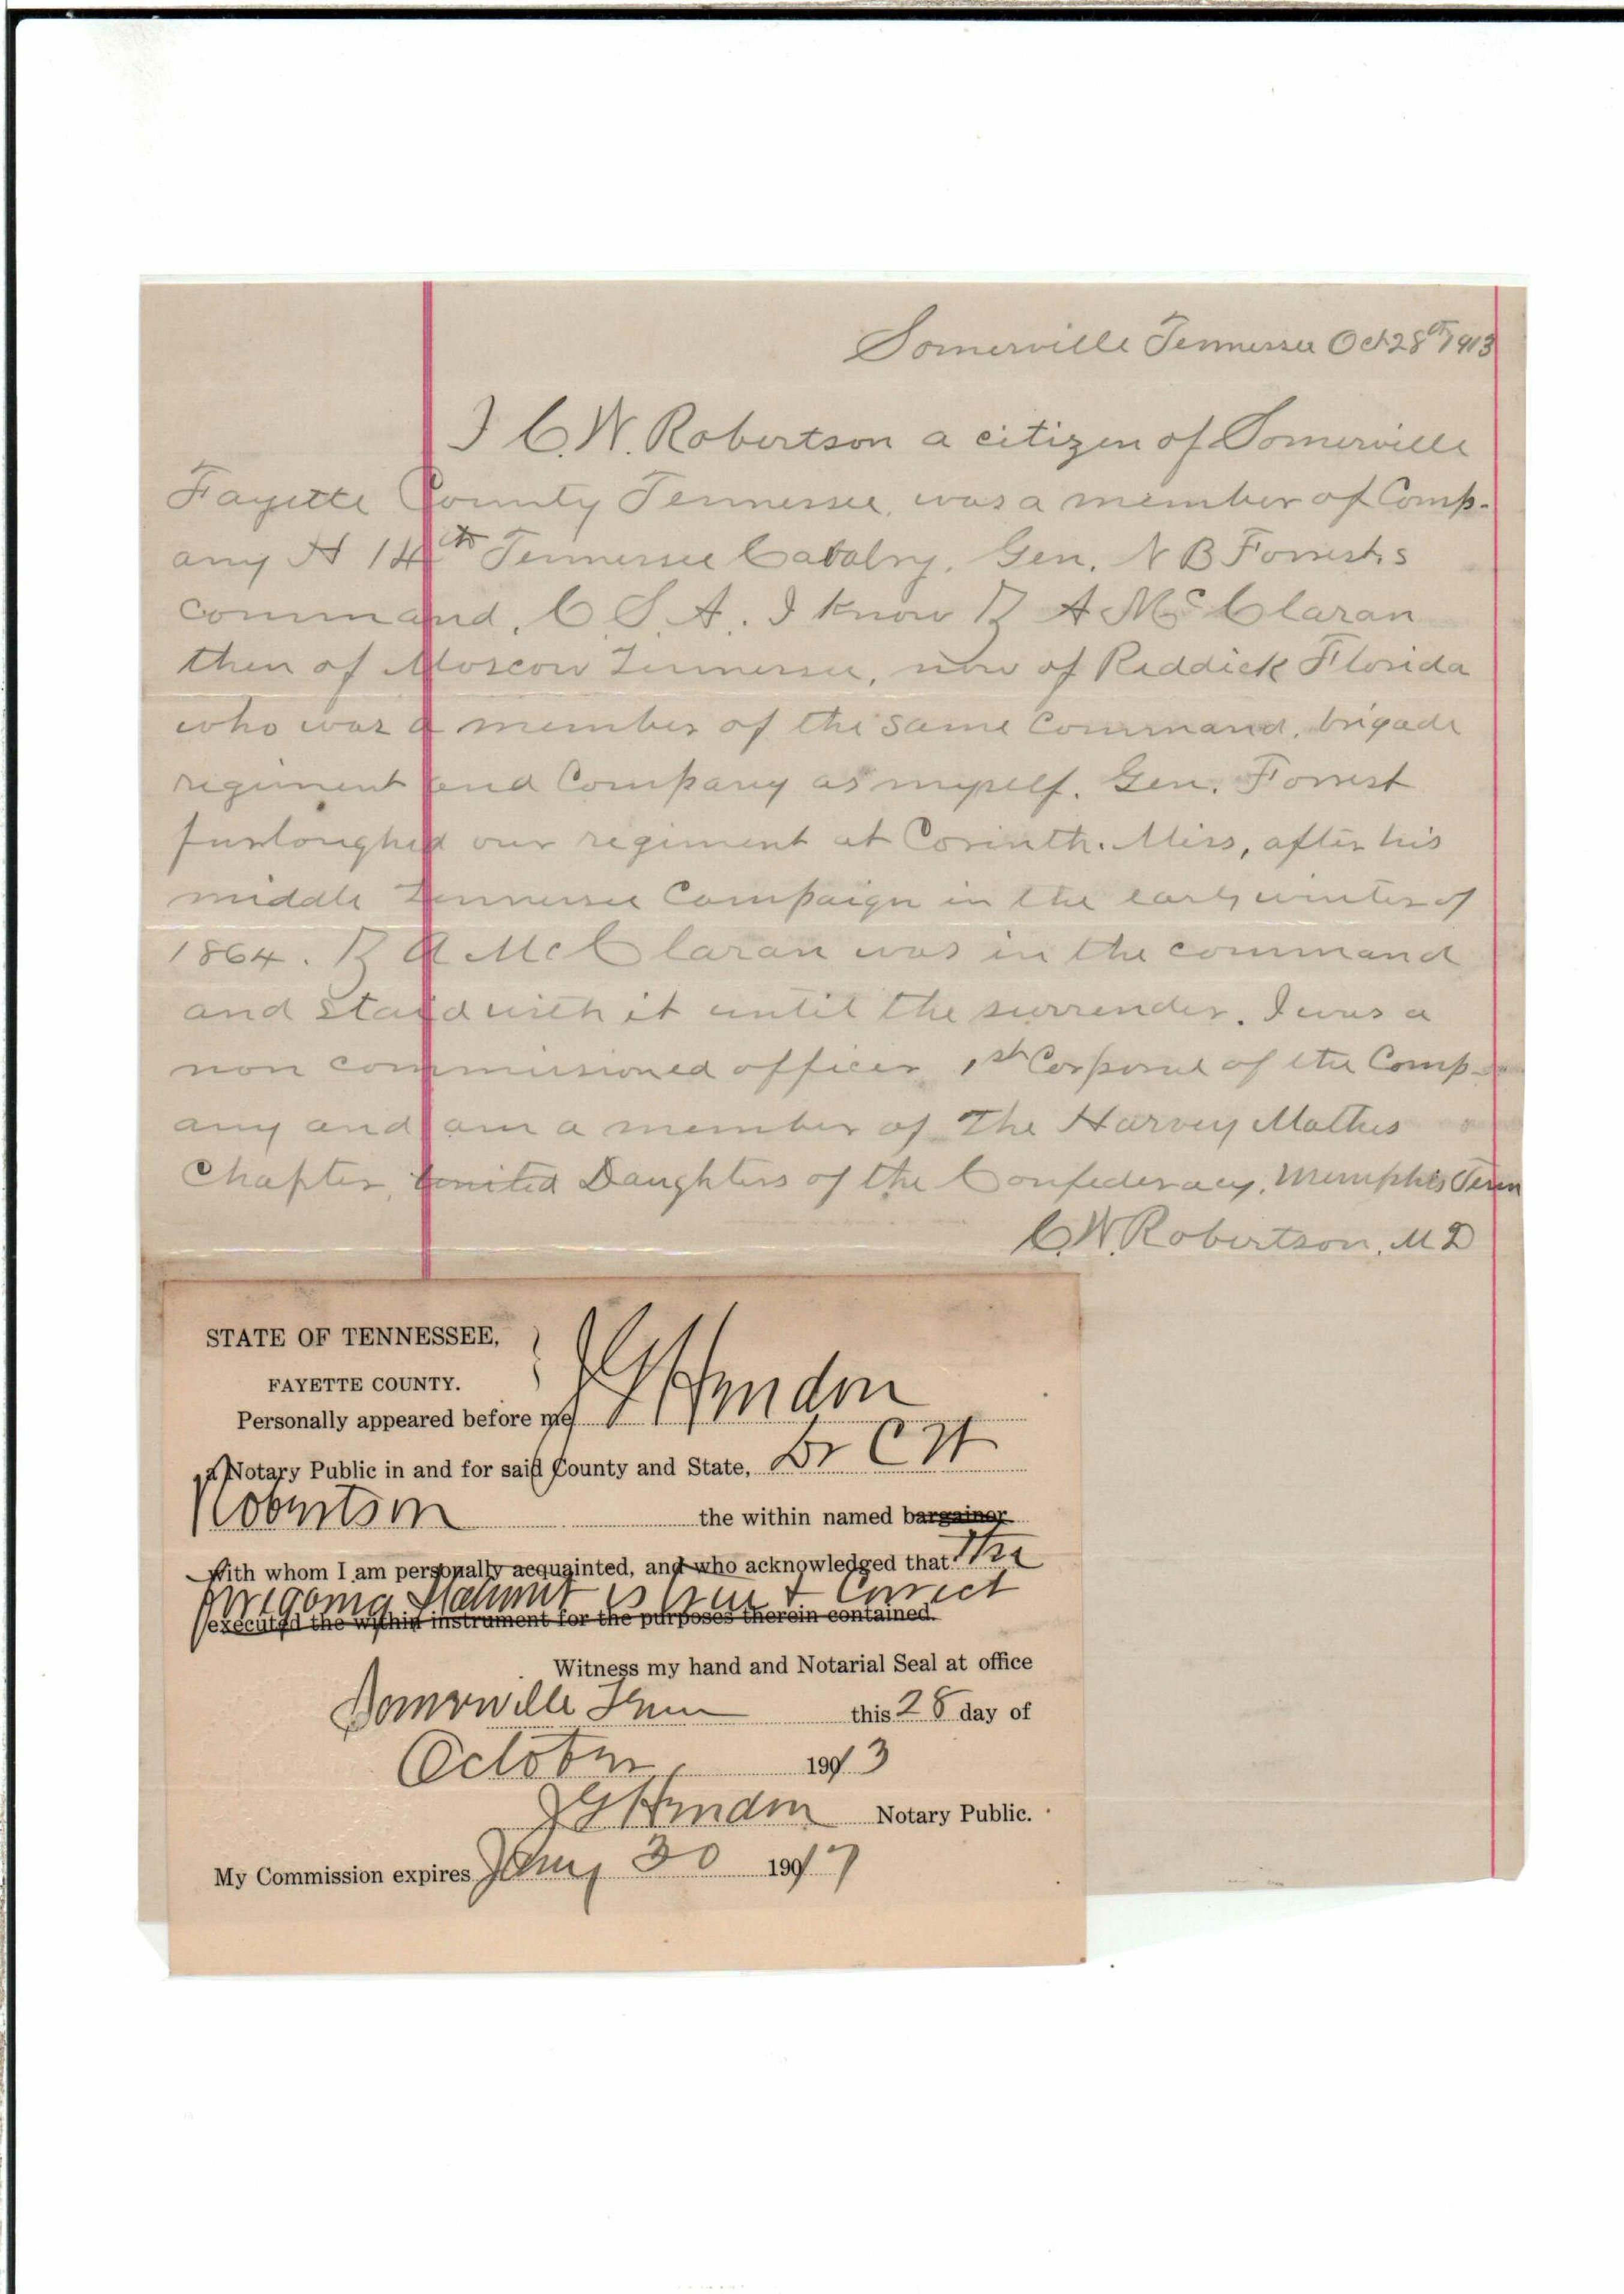 Somerville Tennessee Oct 28th 1913
I C.W. Robertson a citizen of Somerville
Fayette County Tennessee, was a member of Comp-
any H 14th Tennessee Cavalry, Gen. N B Forrest,s
command, C.S.A. I know R A McClaran
then of Moscow Tennessee, now of Reddick Florida
who was a member of the same Command, brigade
regiment and Company as myself. Gen. Forrest
furloughed our regiment at Corinth. Miss, after his
middle Tennessee Campaign in the early winter of
1864. R A McClaran was in the command
and staid with it until the surrender. I was a
non commissioned officer 1st Corporal of the Comp-
any and am a member of The Harvey Mathes
Chapter, United Daughters of the Confederacy, Memphis Tenn
C.W. Robertson, M D
STATE OF TENNESSEE,
FAYETTE COUNTY.
Personally appeared before me J G Herndon
a Notary Public in and for said County and State, Dr C W
Robertson the within named bargainor
with whom I am personally acquainted, and who acknowledged that the
foregoing statement is true & correct
executed the within instrument for the purposes therein contained.
Witness my hand and Notarial Seal at office
Somerville Tenn this 28 day of
October 1913
J G Herndon Notary Public.
My Commission expires Jany 30 1917